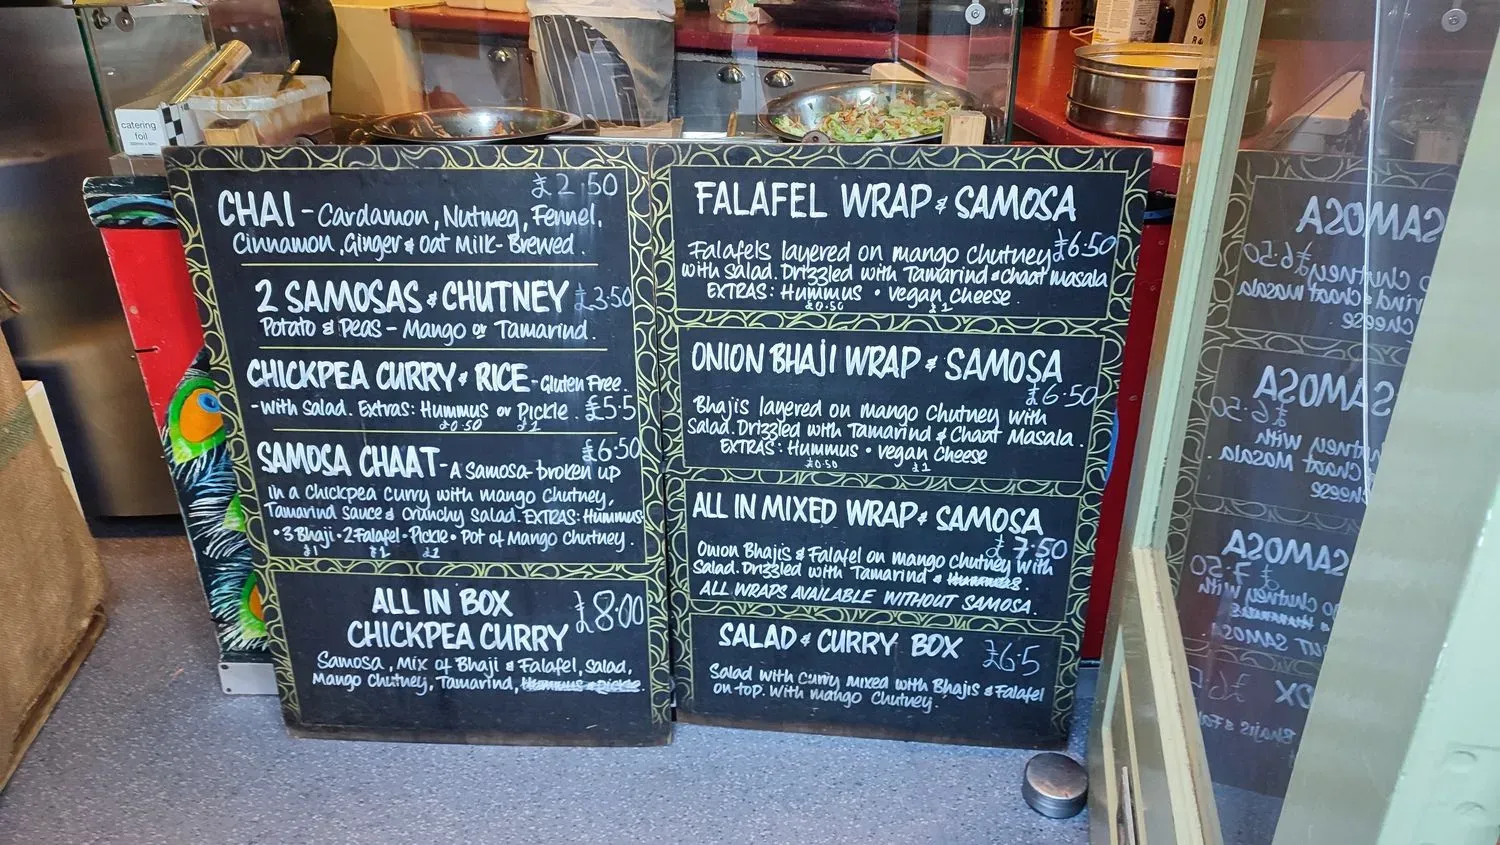 catering
foil
CHAI - Cardamon, Nutmeg, Fennel, £2.50
Cinnamon, Ginger & Oat Milk - Brewed.
2 SAMOSAS & CHUTNEY £3.50
Potato & Peas - Mango or Tamarind.
CHICKPEA CURRY & RICE - Gluten Free.
- With Salad. Extras: Hummus or Pickle. £5.5
£0.50 £1
SAMOSA CHAAT - A Samosa broken up £6.50
in a Chickpea Curry with mango Chutney,
Tamarind Sauce & Crunchy Salad. EXTRAS: Hummus
• 3 Bhaji • 2 Falafel • Pickle • Pot of Mango Chutney.
£1 £1 £1
ALL IN BOX
CHICKPEA CURRY £8.00
Samosa, Mix of Bhaji & Falafel, Salad,
Mango Chutney, Tamarind, Hummus & Pickle.
FALAFEL WRAP & SAMOSA
Falafels layered on mango Chutney £6.50
with Salad. Drizzled with Tamarind & Chaat masala
EXTRAS: Hummus • vegan cheese.
£0.50 £1
ONION BHAJI WRAP & SAMOSA
£6.50
Bhajis layered on mango Chutney with
Salad. Drizzled with Tamarind & Chaat Masala.
EXTRAS: Hummus • vegan Cheese
£0.50 £1
ALL IN MIXED WRAP & SAMOSA
£7.50
Onion Bhajis & Falafel on mango chutney with
Salad. Drizzled with Tamarind & Hummus.
ALL WRAPS AVAILABLE WITHOUT SAMOSA.
SALAD & CURRY BOX £6.5
Salad with Curry mixed with Bhajis & Falafel
on top. With mango Chutney.